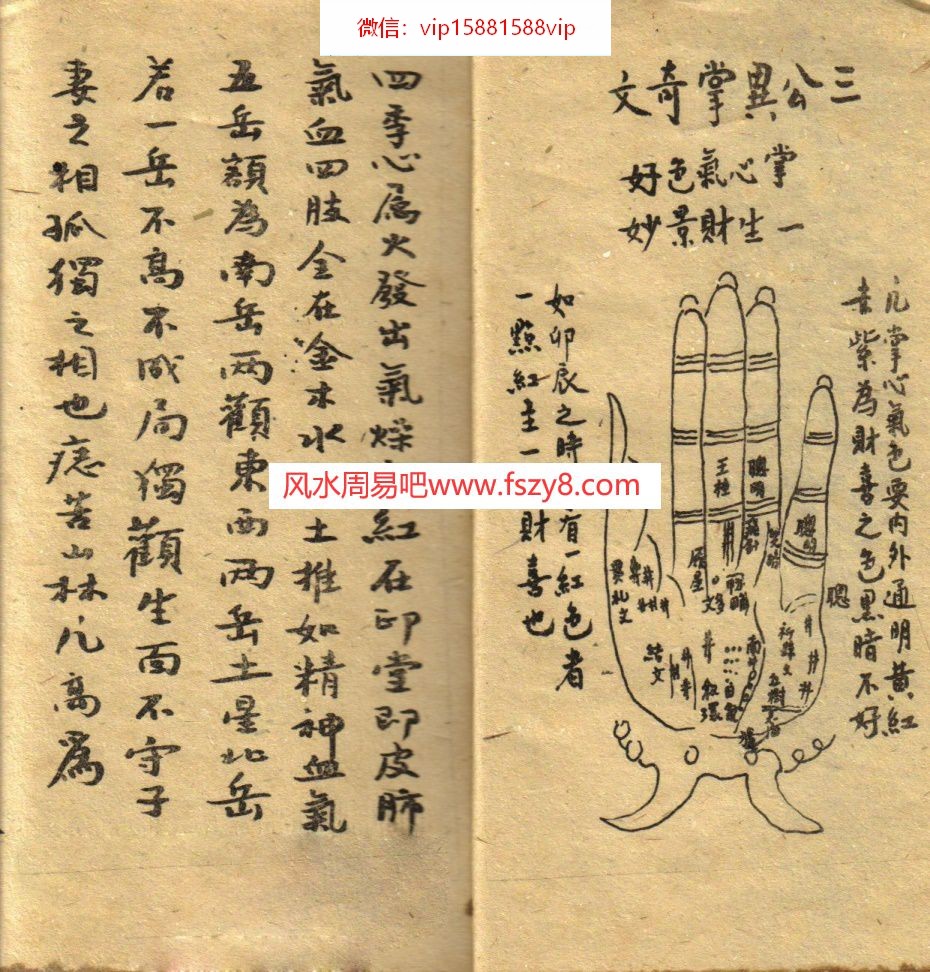 微信：vip15881588vip
三公異掌奇文
掌心氣色好
一生財景妙
凡掌心氣色要內外通明黃紅
紫為財喜之色黑暗不好
如卯辰之時
有一紅色者
一點紅主一
財喜也
聰明
聰明
聰
異扎文
結文
紅環
四季心屬火發出氣燥
紅在印堂即皮肺
氣血四肢全在金木水
土推如精神血氣
五岳額為南岳兩顴東西兩岳土星北岳
若一岳不高不成局獨顴生面不守子
妻之相孤獨之相也痣苦山林凡高為
风水周易吧www.fszy8.com